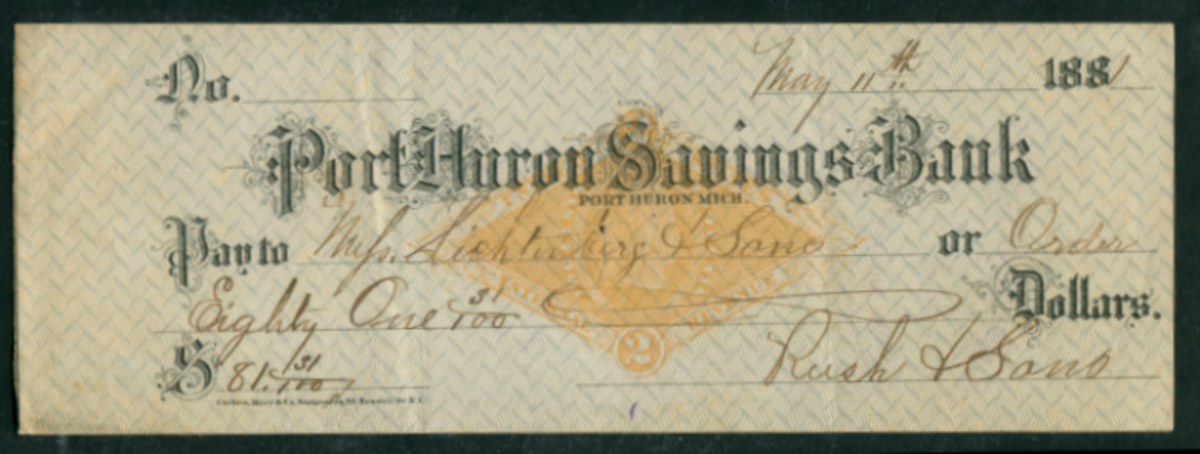 No. May 11th 1881
Port Huron Savings Bank
PORT HURON MICH.
Pay to Mess. Lichtenberg & Sons or Order
Eighty One 31/100 Dollars.
$ 81.31/100 Rush & Sons
2